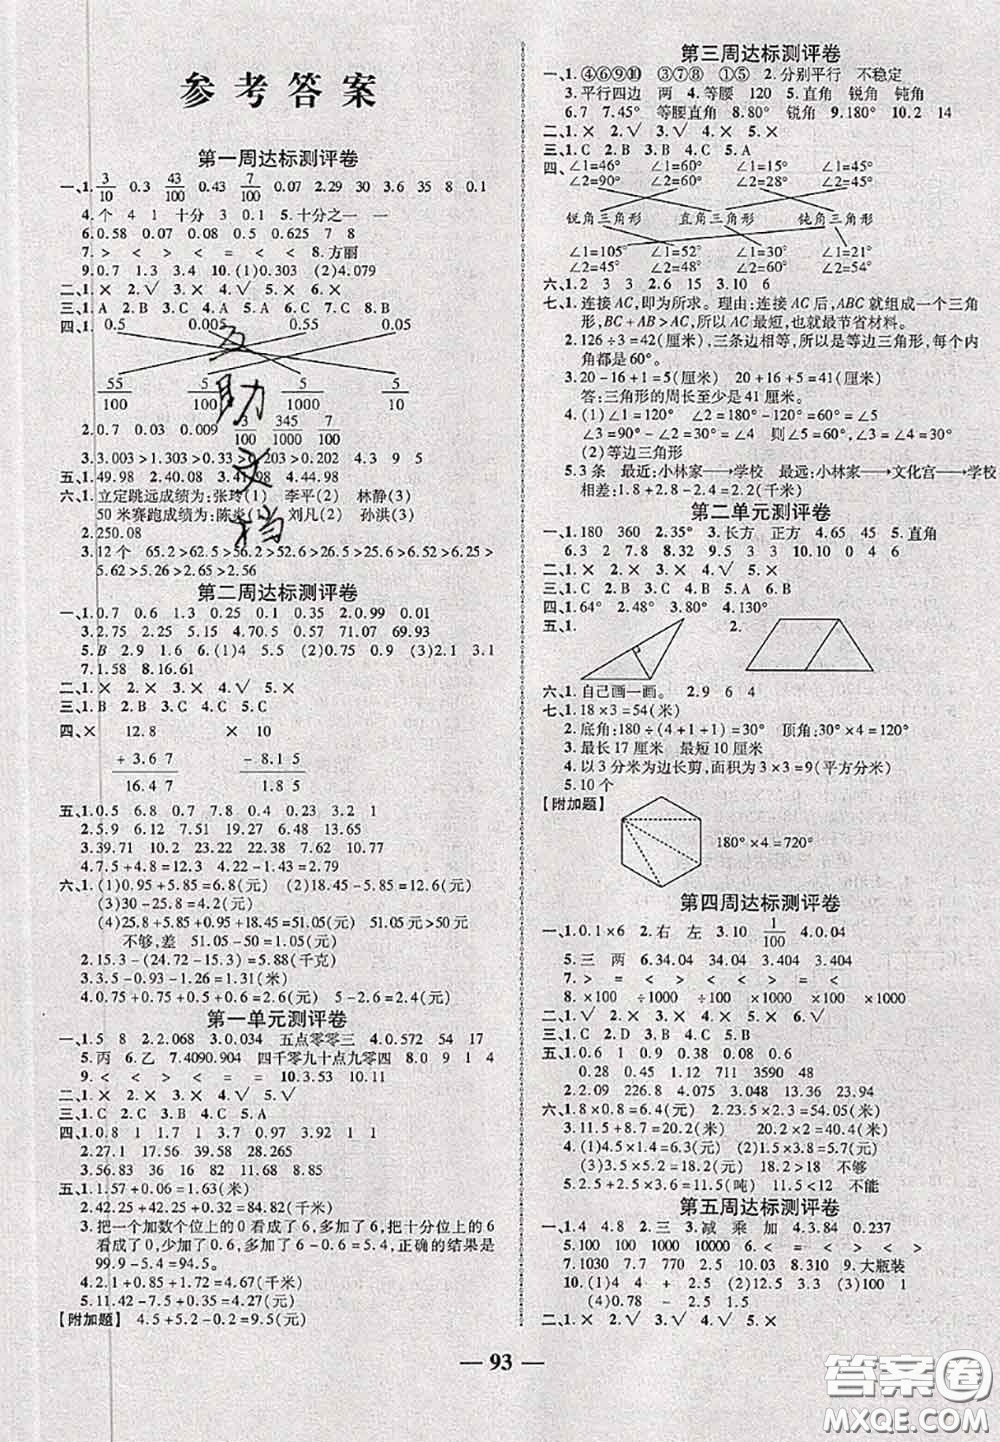 参考答案
第一周达标测评卷
一、1. 3/10 0.3 43/100 0.43 7/100 0.07 2.29 30 3.6 35 8 0.1
4.个 4 1 十分 3 0.1 5.十分之一 一
6.0.58 0.07 0.08 0.625 8 7.8
7.> < < = < = 8.方丽
9.0.7 1.3 3.4 10.(1)0.303 (2)4.079
二、1.× 2.√ 3.× 4.× 5.×
三、1.A 2.B 3.A 4.B 5.C
四、1. 0.5 0.005 0.55 0.05
55/100 5/100 5/1000 5/10
2.0.7 0.03 0.009 3/100 345/1000 7/100
3.3.003>1.303>0.33>0.203>0.202 4.3 9 5
五、1.49.98 2.40.08 3.41.98 4.44.98
六、1.立定跳远成绩为:张玲(1) 李平(2) 林静(3)
50米赛跑成绩为:陈炎(1) 刘凡(2) 孙洪(3)
2.250.08
3.12个 65.2>62.5>56.2>52.6>26.5>25.6>6.52>6.25>
5.62>5.26>2.65>2.56
第二周达标测评卷
一、1.0.7 0.6 1.3 0.25 0.1 0.35 2.0.99 0.01
3.2.75 2.25 5.15 4.0.50 0.71 71.07 69.93
5.B 2.19 6.(1)4 (2)5.4 (3)0.9 (4)0.9 (5)2.1 3.1
7.1.58 8.16.61
二、1.× 2.× 3.× 4.√ 5.×
三、1.B 2.C 3.C 4.A 5.C
四、× 12.8 × 10
+ 3.6 7 - 8.1 5
16.4 7 1.8 5
五、1.0.5 6.8 0.7 9.7 0.4 0.23 3.2 1
2.5.9 6.12 7.51 19.27 6.48 13.65
3.39.71 10.2 23.38 14.8 7.65 10
4.7.5+4.8=12.3 4.22-1.43=2.79
六、1.(1)0.95+5.85=6.8(元) (2)18.45-5.85=12.6(元)
(3)30-25.8=4.2(元)
(4)25.8+5.85+0.95+18.45=51.05(元) 51.05元>50元
不够,差 51.05-50=1.05(元)
2.15.3-(24.72-15.3)=5.88(千克)
3.2.2-0.93+0.04=1.31(米)
4.0.75+0.75+0.5+0.6=2.6(元) 5-2.6=2.4(元)
第一单元测评卷
一、1.5 8 2.2.068 3.0.034 五点零零三 4.0.572 54 17
5.丙 6.乙 7.4090.904 四千零九十点九零四 8.0 9 1 4
9.< < < = 10.3.53 10.11
二、1.× 2.× 3.× 4.√ 5.√
三、1.C 2.A 3.B 4.C 5.A
四、1.0.8 1 1.7 1 3.7 0.97 0.92 1
2.27.1 17.56 39.58 28.265
3.56 36 16 8 82 83 23 77
五、1.1.57+0.06=1.63(米)
2.42.25+42.25+0.32=84.82(千米)
3.把一个加数个位上的0看成了6,多加了6,把十分位上的6
看成了0,少加了0.6,多加了6-0.6=5.4,正确的结果是
99.9-5.4=94.5。
4.2.1+0.85+1.72=4.67(千米)
5.11.42-7.5+0.35=4.27(元)
【附加题】 4.5+5.2-0.2=9.5(元)
第三周达标测评卷
一、1.④⑥⑨⑩ ③⑦⑧ ①⑤ 2.分别平行 不稳定
3.平行四边 两 4.等腰 120 5.直角 锐角 钝角
6.7 7.45° 等腰直角 8.80° 锐角 9.180° 10.2 14
二、1.× 2.√ 3.× 4.√ 5.×
三、1.C 2.B 3.B 4.C 5.A
四、∠1=46° ∠1=60° ∠1=15° ∠1=45°
∠2=90° ∠2=60° ∠2=28° ∠2=45°
锐角三角形 直角三角形 钝角三角形
∠1=105° ∠1=52° ∠1=30° ∠1=21°
∠2=62° ∠2=65° ∠2=60° ∠2=54°
六、1.2 3 3 2.6 15 3.10 6
七、1.连接AC,即为所求。理由:连接AC后,ABC就组成一个三角
形,BC+AB>AC,所以AC最短,也就最节省材料。
2.126÷3=42(厘米),三条边相等,所以是等边三角形,每个内
角都是60°。
3.20-16+1=5(厘米) 20+16+5=41(厘米)
答:三角形的周长至少是41厘米。
4.(1)∠1=120° ∠2=180°-120°=60°=∠5
∠3=180°-60°-60°=60°=∠4
(2)等边三角形
5.3条 最近:小林家→学校 最远:小林家→文化宫→学校
相差:1.8+2.8-2.4=2.2(千米)
第二单元测评卷
一、1.180 360 2.35° 3.长方 正方 4.0 45 5.直角
6.3 2 7.8 8.32 9.5 3 10.10 4 6
二、1.× 2.× 3.√ 4.× 5.×
三、1.C 2.B 3.C 4.A 5.B
四、1.64° 2.48° 3.80° 4.130°
五、1. 2.
六、1.自己画一画。 2.9 6 4
七、1.18×3=54(米)
2.底角:180÷(4+1+1)=30° 顶角:30°×4=120°
3.最长17厘米 最短10厘米
4.以3分米为边长剪,面积为3×3=9(平方分米)
5.10个
【附加题】 180°×4=720°
第四周达标测评卷
一、1.0.1×6 2.右 左 3.10 1/100 4.0.04
5.三 两 6.34.04 34.04 3.404 3.404
7.> = < < > >
8.×100 ÷1000 ÷100 ×1000 ×100
二、1.√ 2.× 3.√ 4.× 5.×
三、1.C 2.D 3.C 4.A 5.D
五、1.0.6 1 0.9 0.38 0.08 0.2
0.28 0.48 1.12 711 3590 48
2.2.08 22.6 4.075 3.048 13.36 23.94
六、1.8×0.8=6.4(元) 2.23.5×2.3=54.05(米)
3.11.5+8.7=20.2(米) 20.2×2=40.4(米)
4.(1)4.5×1.4=6.3(元) (2)1.5×3.8=5.7(元)
(3)3.5×5.2=18.2(元) 18.2>18 不够
5.2.5+2.5×3.6=11.5(吨) 11.5<12 不能
第五周达标测评卷
一、1.4 4.8 2.三 3.减 乘 加 4.3.84 0.237
5.100 10 1000 10000 6.< = > < < =
7.1030 7.52 2.09 8.3.10 3.090 9.大瓶装
10.(1)4 4 + 2.5 (2)12.5 3.5 (3)100 1
(4)0.78 - 2.5 1.5
二、1.× 2.√ 3.× 4.√ 5.√
93
答案圈
MXQE.COM